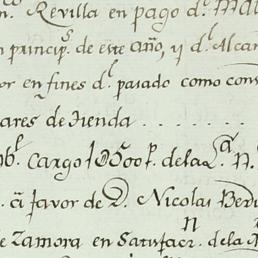 n. Revilla en pago d.
n princip.s de este año, y d.l Alcan
or en fines d.l pasado como cons
ares de tienda . . . . . . .
Cargo 10500 p.s de la L.a N.
á favor de D. Nicolas Ber
e Zamora en Satisfac.n de la